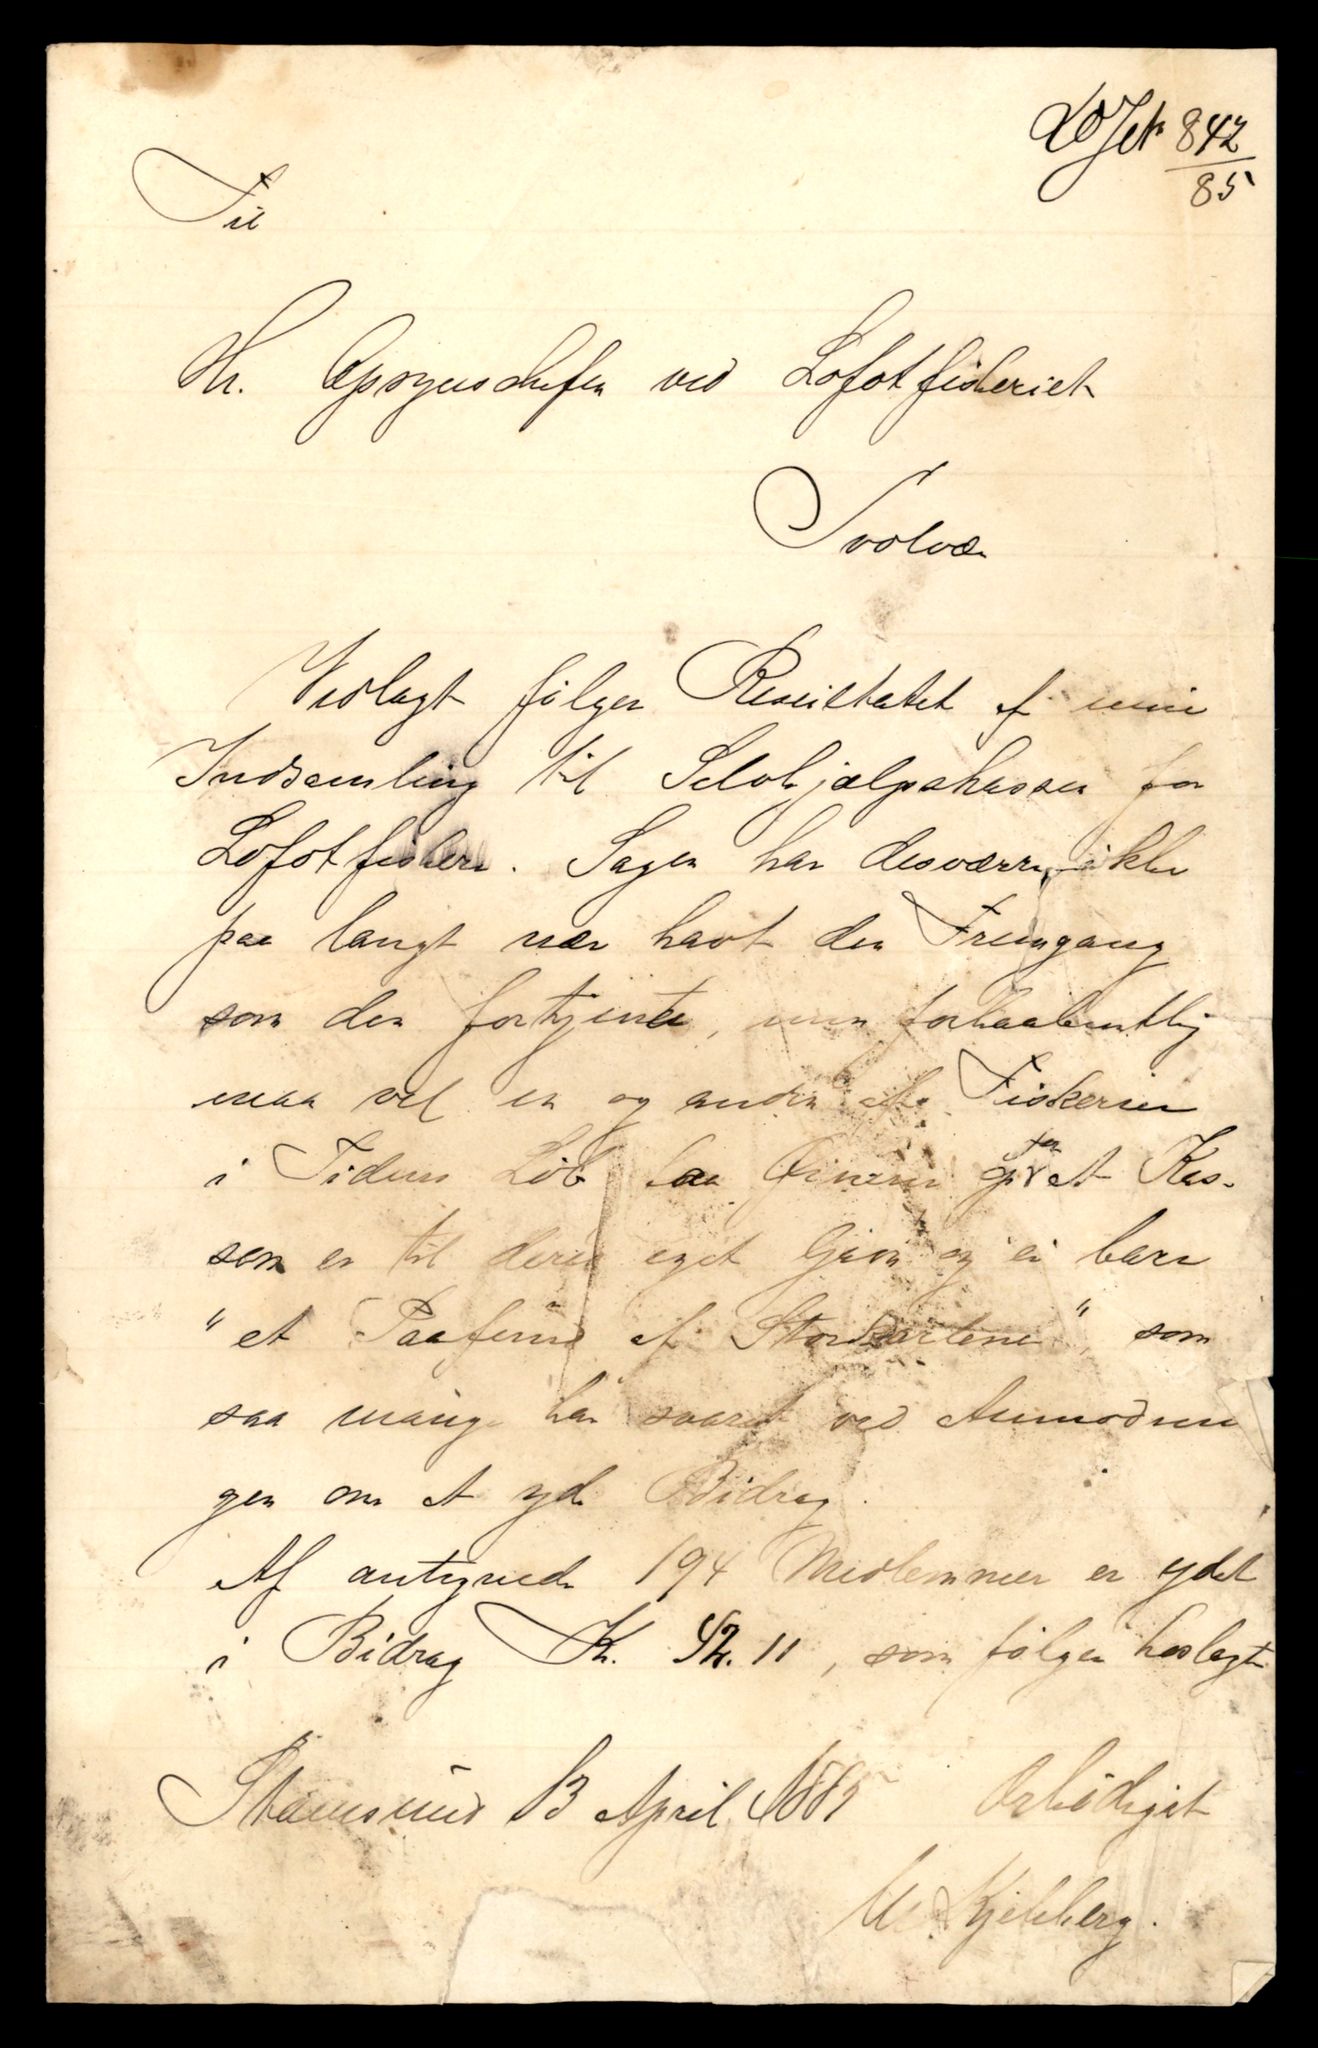 842
85
Til
Hr. Opsynschefen ved Lofotfiskeriet
Svolvær
Vedlagt følger Resultatet af min
Indsamling til Selvhjælpskassen for
Lofotfiskere. Sagen har desværre ikke
paa langt nær havt den Fremgang
som den fortjente, men forhaabentlig
maa vel en og anden af Fiskerne
i Tidens Løb faa Øinene op for at Kas-
sen er til deres eget Gavn og ei bare
"et Paafund af Storkarlene", som
saa mange har svaret ved Anmodnin
gen om at yde Bidrag.
Af antegnede 194 Medlemmer er ydet
i Bidrag Kr. 92.11, som følger hoslagt
Stamsund 13 April 1885 Ærbødigst
Kjelsberg.